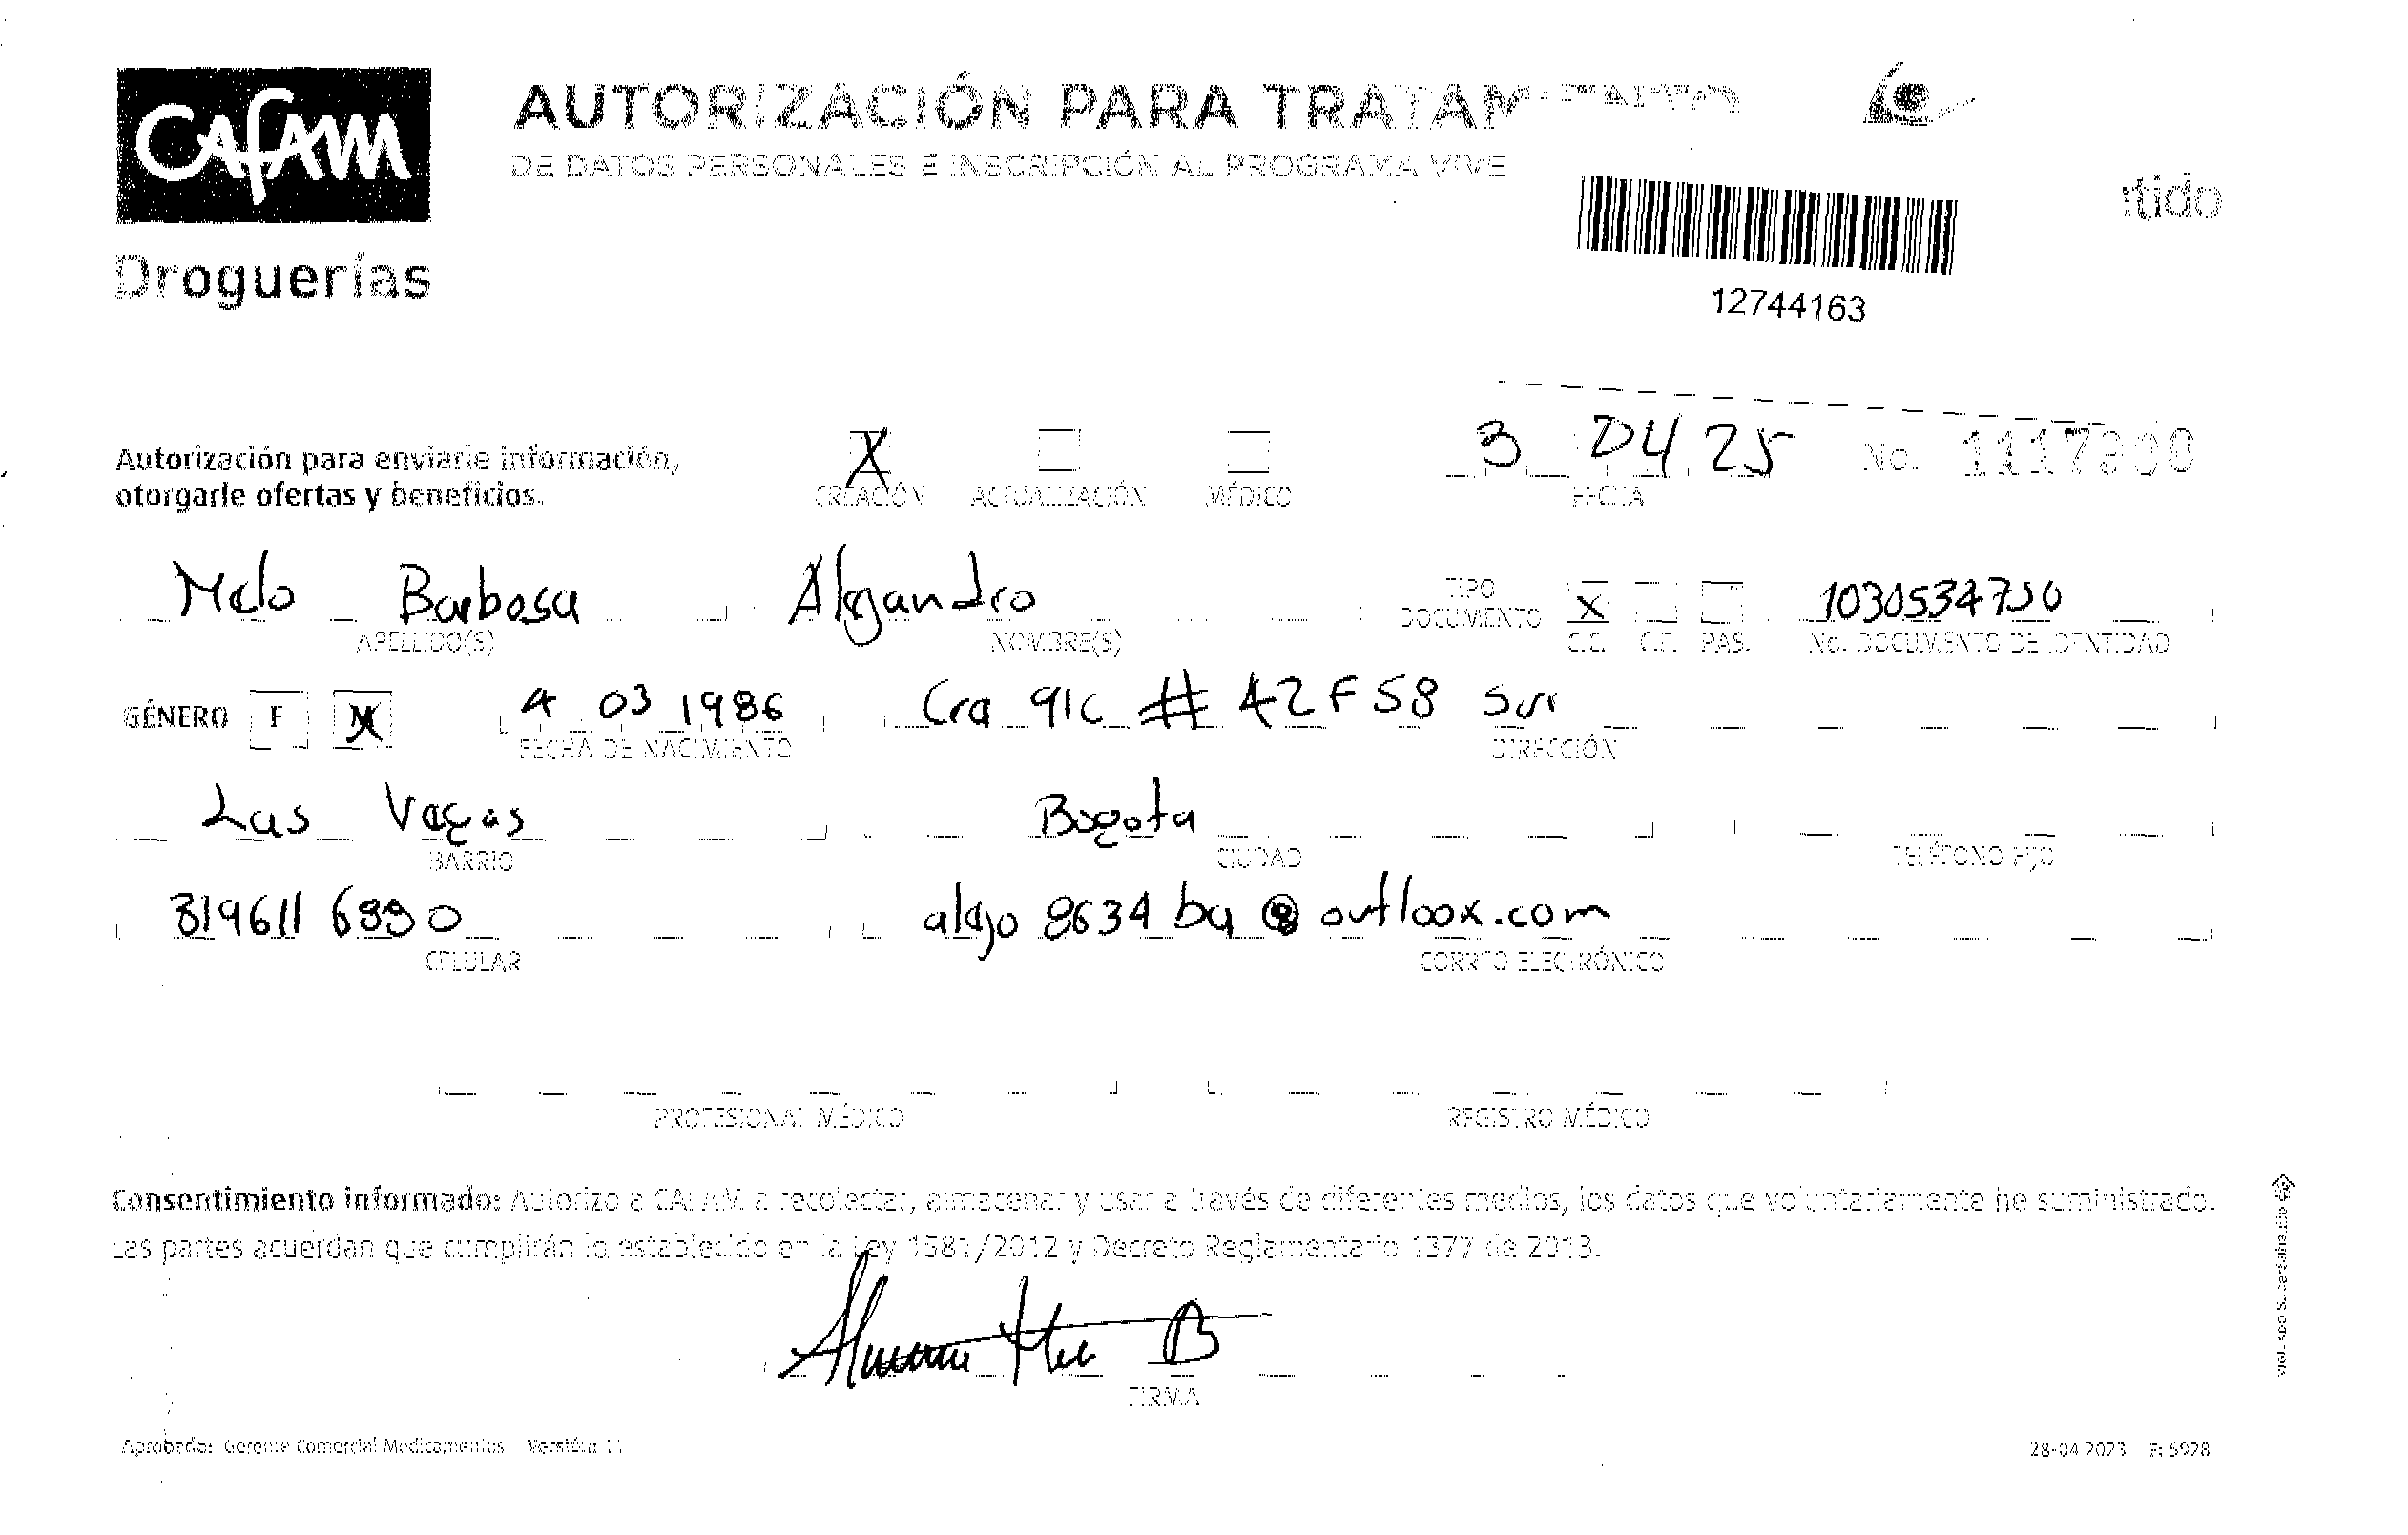 CAFAM
Droguerías
AUTORIZACIÓN PARA TRATAMIENTO
DE DATOS PERSONALES E INSCRIPCIÓN AL PROGRAMA VIVE
rtido
12744163
Autorización para enviarle información,
otorgarle ofertas y beneficios.
X
CREACIÓN ACTUALIZACIÓN MÉDICO
3 04 25
FECHA
No.
Melo Barbosa Alejandro
APELLIDO(S) NOMBRE(S)
TIPO
DOCUMENTO X
C.C. C.E. PAS.
No. DOCUMENTO DE IDENTIDAD
GÉNERO F M X
4 03 1986 Cra 91C # 42F 58 Sur
FECHA DE NACIMIENTO DIRECCIÓN
Las Vegas Bogota
BARRIO CIUDAD TELÉFONO FIJO
alejo 8634 ba @ outloox.com
CELULAR CORREO ELECTRÓNICO
PROFESIONAL MÉDICO REGISTRO MÉDICO
Consentimiento informado: Autorizo a CAFAM a recolectar, almacenar y usar a través de diferentes medios, los datos que voluntariamente he suministrado.
Las partes acuerdan que cumplirán lo establecido en la Ley 1581/2012 y Decreto Reglamentario 1377 de 2013.
FIRMA
Aprobador: Gerente Comercial Medicamentos Versión: 11
28-04 2023 F: 5928